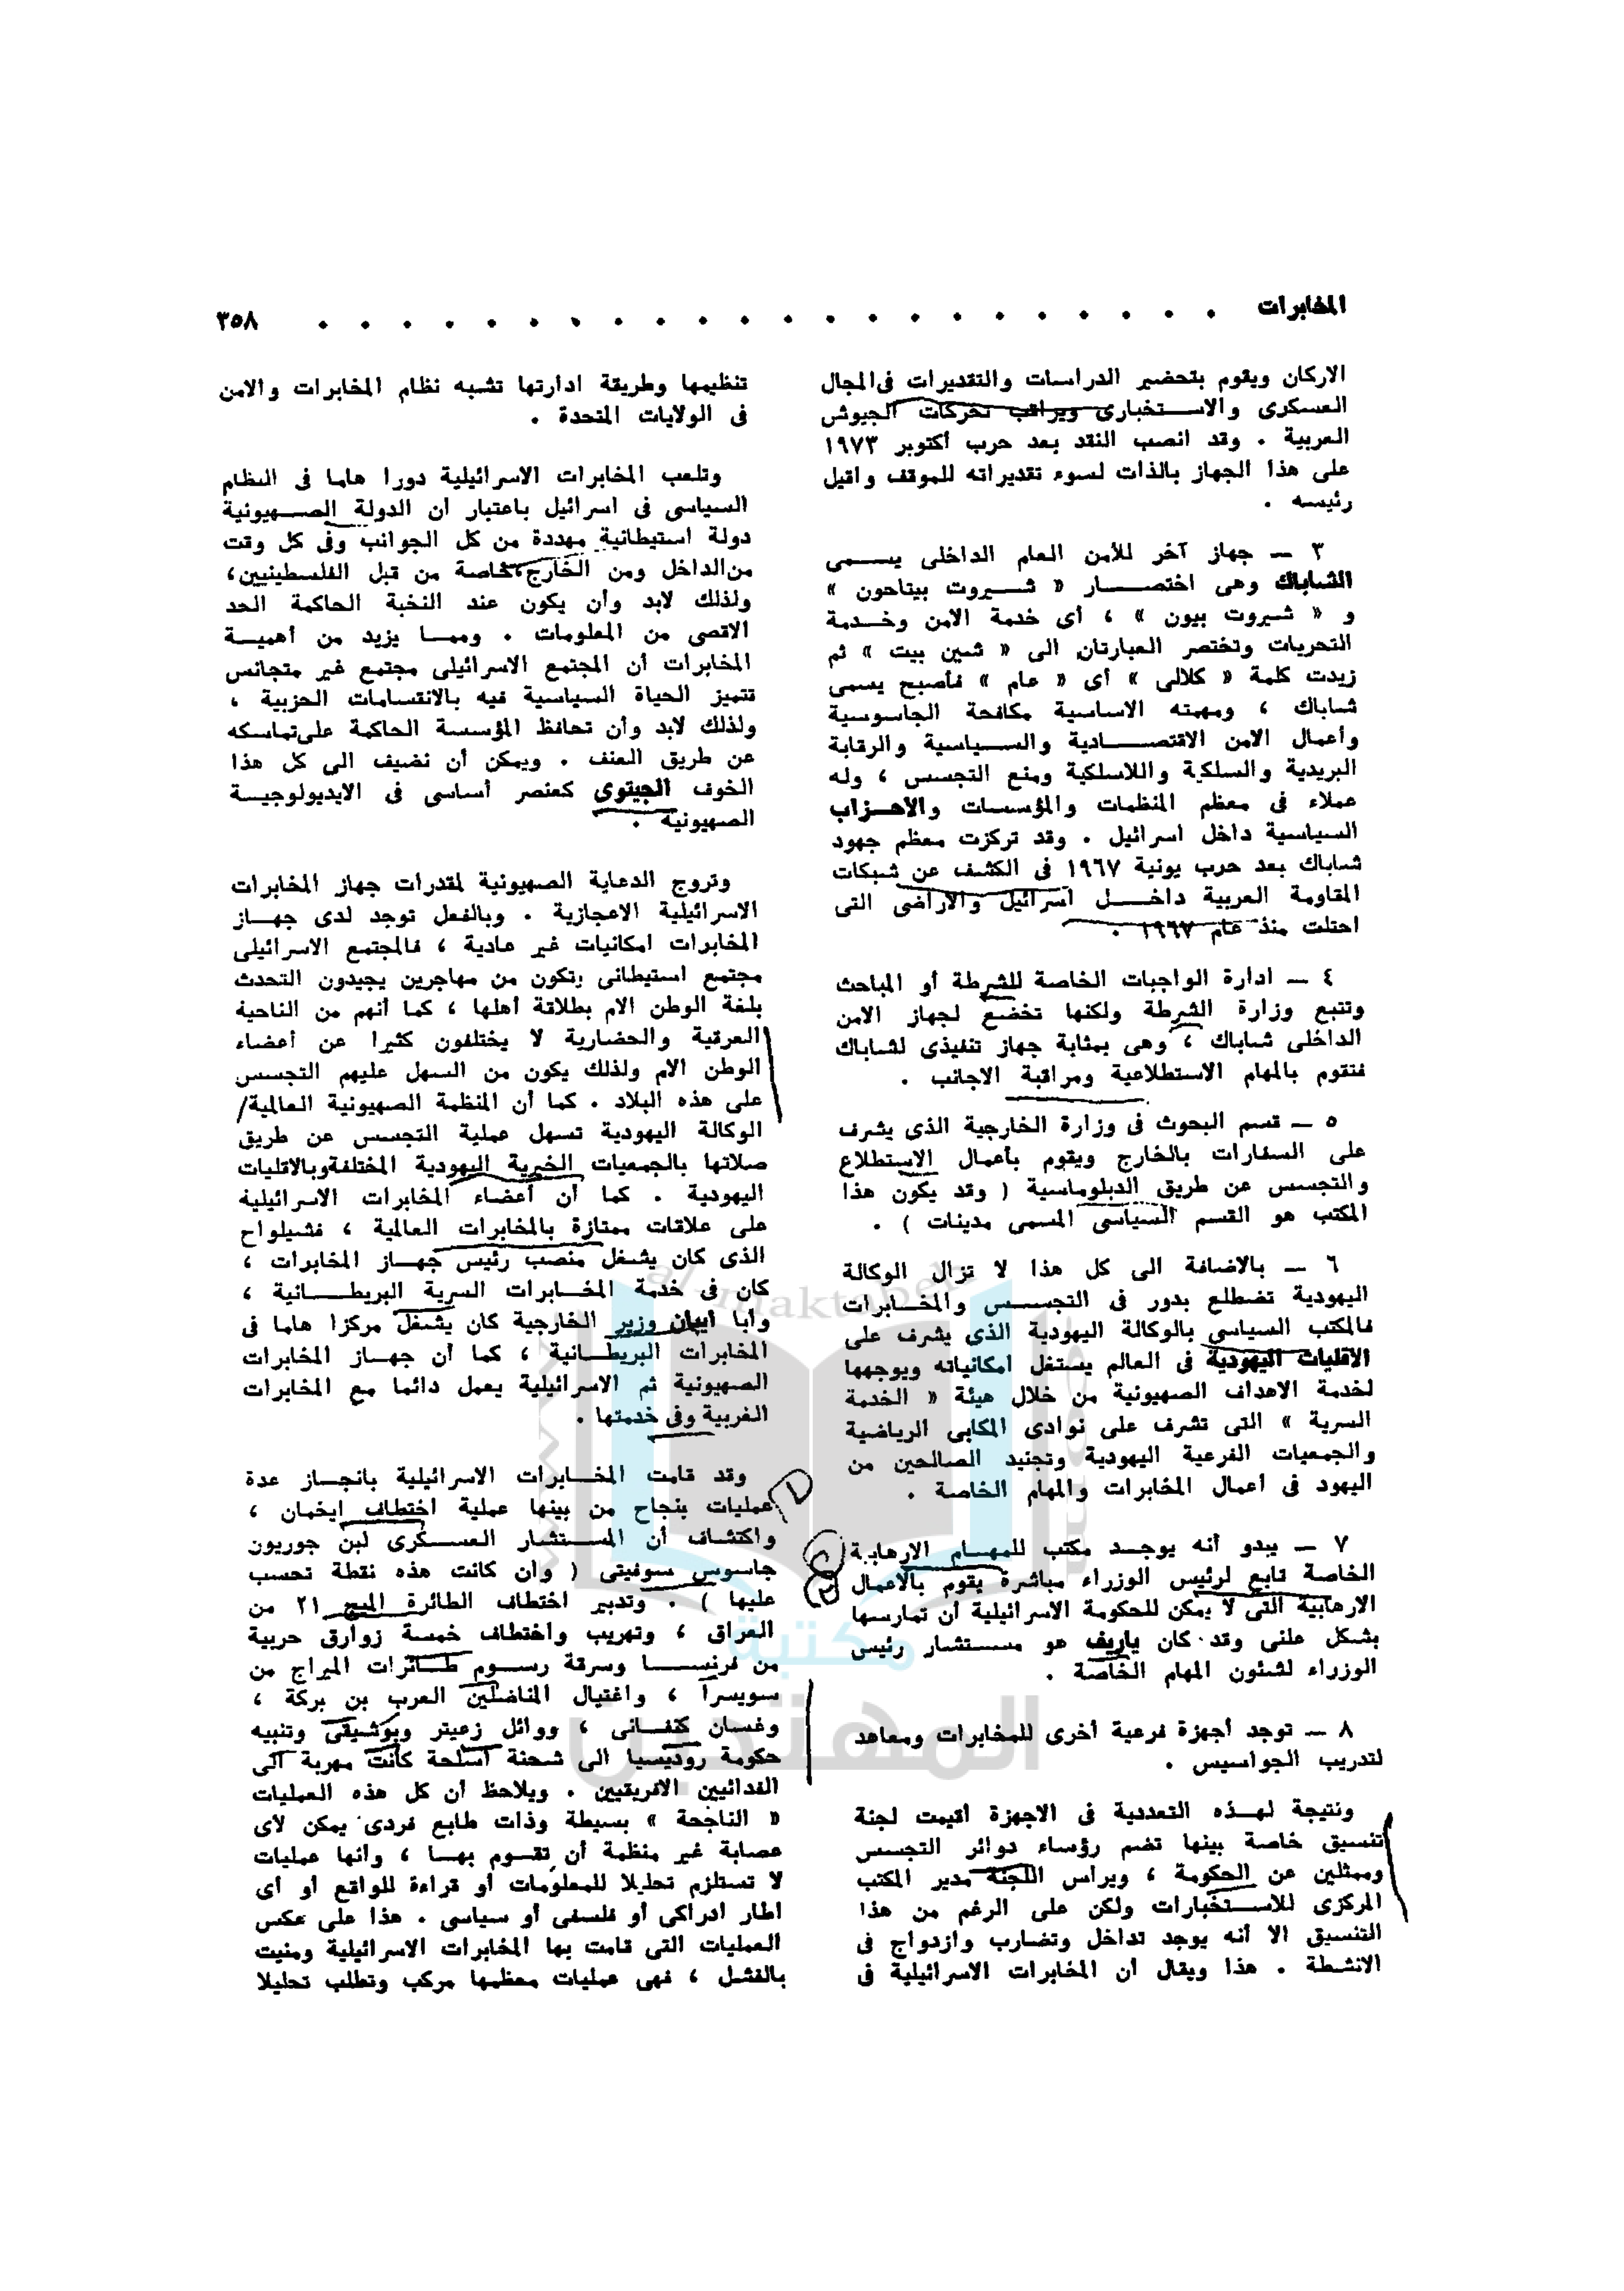 المخابرات . . . . . . . . . . . . . . . . . . . . . . ٣٥٨
الاركان ويقوم بتحضير الدراسات والتقديرات فى المجال
العسكرى والاستخبارى ويراقب تحركات الجيوش
العربية . وقد انصب النقد بعد حرب أكتوبر ١٩٧٣
على هذا الجهاز بالذات لسوء تقديراته للموقف واقيل
رئيسه .
٣ ــ جهاز آخر للأمن العام الداخلى يسمى
الشاباك وهى اختصار « شيروت بيتاحون »
و « شيروت بيون » ، أى خدمة الامن وخدمة
التحريات وتختصر العبارتان الى « شين بيت » ثم
زيدت كلمة « كلالى » أى « عام » فأصبح يسمى
شاباك ، ومهمته الاساسية مكافحة الجاسوسية
وأعمال الامن الاقتصادية والسياسية والرقابة
البريدية والسلكية واللاسلكية ومنع التجسس ، وله
عملاء فى معظم المنظمات والمؤسسات والاحزاب
السياسية داخل اسرائيل . وقد تركزت معظم جهود
شاباك بعد حرب يونية ١٩٦٧ فى الكشف عن شبكات
المقاومة العربية داخل اسرائيل والاراضى التى
احتلت منذ عام ١٩٦٧ .
٤ ــ ادارة الواجبات الخاصة للشرطة أو المباحث
وتتبع وزارة الشرطة ولكنها تخضع لجهاز الامن
الداخلى شاباك ، وهى بمثابة جهاز تنفيذى لشاباك
فتقوم بالمهام الاستطلاعية ومراقبة الاجانب .
٥ ــ قسم البحوث فى وزارة الخارجية الذى يشرف
على السفارات بالخارج ويقوم بأعمال الاستطلاع
والتجسس عن طريق الدبلوماسية ( وقد يكون هذا
المكتب هو القسم السياسى المسمى مدينات ) .
٦ ــ بالاضافة الى كل هذا لا تزال الوكالة
اليهودية تضطلع بدور فى التجسس والمخابرات
فالمكتب السياسي بالوكالة اليهودية الذى يشرف على
الاقليات اليهودية فى العالم يستغل امكانياته ويوجهها
لخدمة الاهداف الصهيونية من خلال هيئة « الخدمة
السرية » التى تشرف على نوادى المكابى الرياضية
والجمعيات الفرعية اليهودية وتجنيد الصالحين من
اليهود فى أعمال المخابرات والمهام الخاصة .
٧ ــ يبدو أنه يوجد مكتب للمهام الارهابية
الخاصة تابع لرئيس الوزراء مباشرة يقوم بالاعمال
الارهابية التى لا يمكن للحكومة الاسرائيلية أن تمارسها
بشكل علنى وقد كان ياريف هو مستشار رئيس
الوزراء لشئون المهام الخاصة .
٨ ــ توجد أجهزة فرعية أخرى للمخابرات ومعاهد
لتدريب الجواسيس .
ونتيجة لهذه التعددية فى الاجهزة أقيمت لجنة
تنسيق خاصة بينها تضم رؤساء دوائر التجسس
وممثلين عن الحكومة ، ويراس اللجنة مدير المكتب
المركزى للاستخبارات ولكن على الرغم من هذا
التنسيق الا أنه يوجد تداخل وتضارب وازدواج فى
الانشطة . هذا ويقال أن المخابرات الاسرائيلية فى
تنظيمها وطريقة ادارتها تشبه نظام المخابرات والامن
فى الولايات المتحدة .
وتلعب المخابرات الاسرائيلية دورا هاما فى النظام
السياسى فى اسرائيل باعتبار ان الدولة الصهيونية
دولة استيطانية مهددة من كل الجوانب وفى كل وقت
من الداخل ومن الخارج، خاصة من قبل الفلسطينيين،
ولذلك لابد وأن يكون عند النخبة الحاكمة الحد
الاقصى من المعلومات . ومما يزيد من أهمية
المخابرات أن المجتمع الاسرائيلى مجتمع غير متجانس
تتميز الحياة السياسية فيه بالانقسامات الحزبية ،
ولذلك لابد وأن تحافظ المؤسسة الحاكمة على تماسكه
عن طريق العنف . ويمكن أن نضيف الى كل هذا
الخوف الجيتوى كعنصر أساسى فى الايديولوجية
الصهيونية .
وتروج الدعاية الصهيونية لمقدرات جهاز المخابرات
الاسرائيلية الاعجازية . وبالفعل توجد لدى جهاز
المخابرات امكانيات غير عادية ، فالمجتمع الاسرائيلى
مجتمع استيطانى يتكون من مهاجرين يجيدون التحدث
بلغة الوطن الام بطلاقة أهلها ، كما أنهم من الناحية
العرقية والحضارية لا يختلفون كثيرا عن أعضاء
الوطن الام ولذلك يكون من السهل عليهم التجسس
على هذه البلاد . كما أن المنظمة الصهيونية العالمية/
الوكالة اليهودية تسهل عملية التجسس عن طريق
صلاتها بالجمعيات الخيرية اليهودية المختلفة وبالاقليات
اليهودية . كما أن أعضاء المخابرات الاسرائيلية
على علاقات ممتازة بالمخابرات العالمية ، فشيلواح
الذى كان يشغل منصب رئيس جهاز المخابرات ،
كان فى خدمة المخابرات السرية البريطانية ،
وأبا ايبان وزير الخارجية كان يشغل مركزا هاما فى
المخابرات البريطانية ، كما أن جهاز المخابرات
الصهيونية ثم الاسرائيلية يعمل دائما مع المخابرات
الغربية وفى خدمتها .
وقد قامت المخابرات الاسرائيلية بانجاز عدة
عمليات بنجاح من بينها عملية اختطاف ايخمان ،
واكتشاف أن المستشار العسكرى لبن جوريون
جاسوس سوفيتى ( وان كانت هذه نقطة تحسب
عليها ) . وتدبير اختطاف الطائرة الميج ٢١ من
العراق ، وتهريب واختطاف خمسة زوارق حربية
من فرنسا وسرقة رسوم طائرات الميراج من
سويسرا ، واغتيال المناضلين العرب بن بركة ،
وغسان كنفانى ، ووائل زعيتر وبوشيقى وتنبيه
حكومة روديسيا الى شحنة أسلحة كانت مهربة الى
الفدائيين الافريقيين . ويلاحظ أن كل هذه العمليات
« الناجحة » بسيطة وذات طابع فردى يمكن لأى
عصابة غير منظمة أن تقوم بها ، وأنها عمليات
لا تستلزم تحليلا للمعلومات أو قراءة للواقع أو أى
اطار ادراكى أو فلسفى أو سياسى . هذا على عكس
العمليات التى قامت بها المخابرات الاسرائيلية ومنيت
بالفشل ، فهى عمليات معظمها مركب وتطلب تحليلا
al-maktabeh
مكتبة
المهتدين